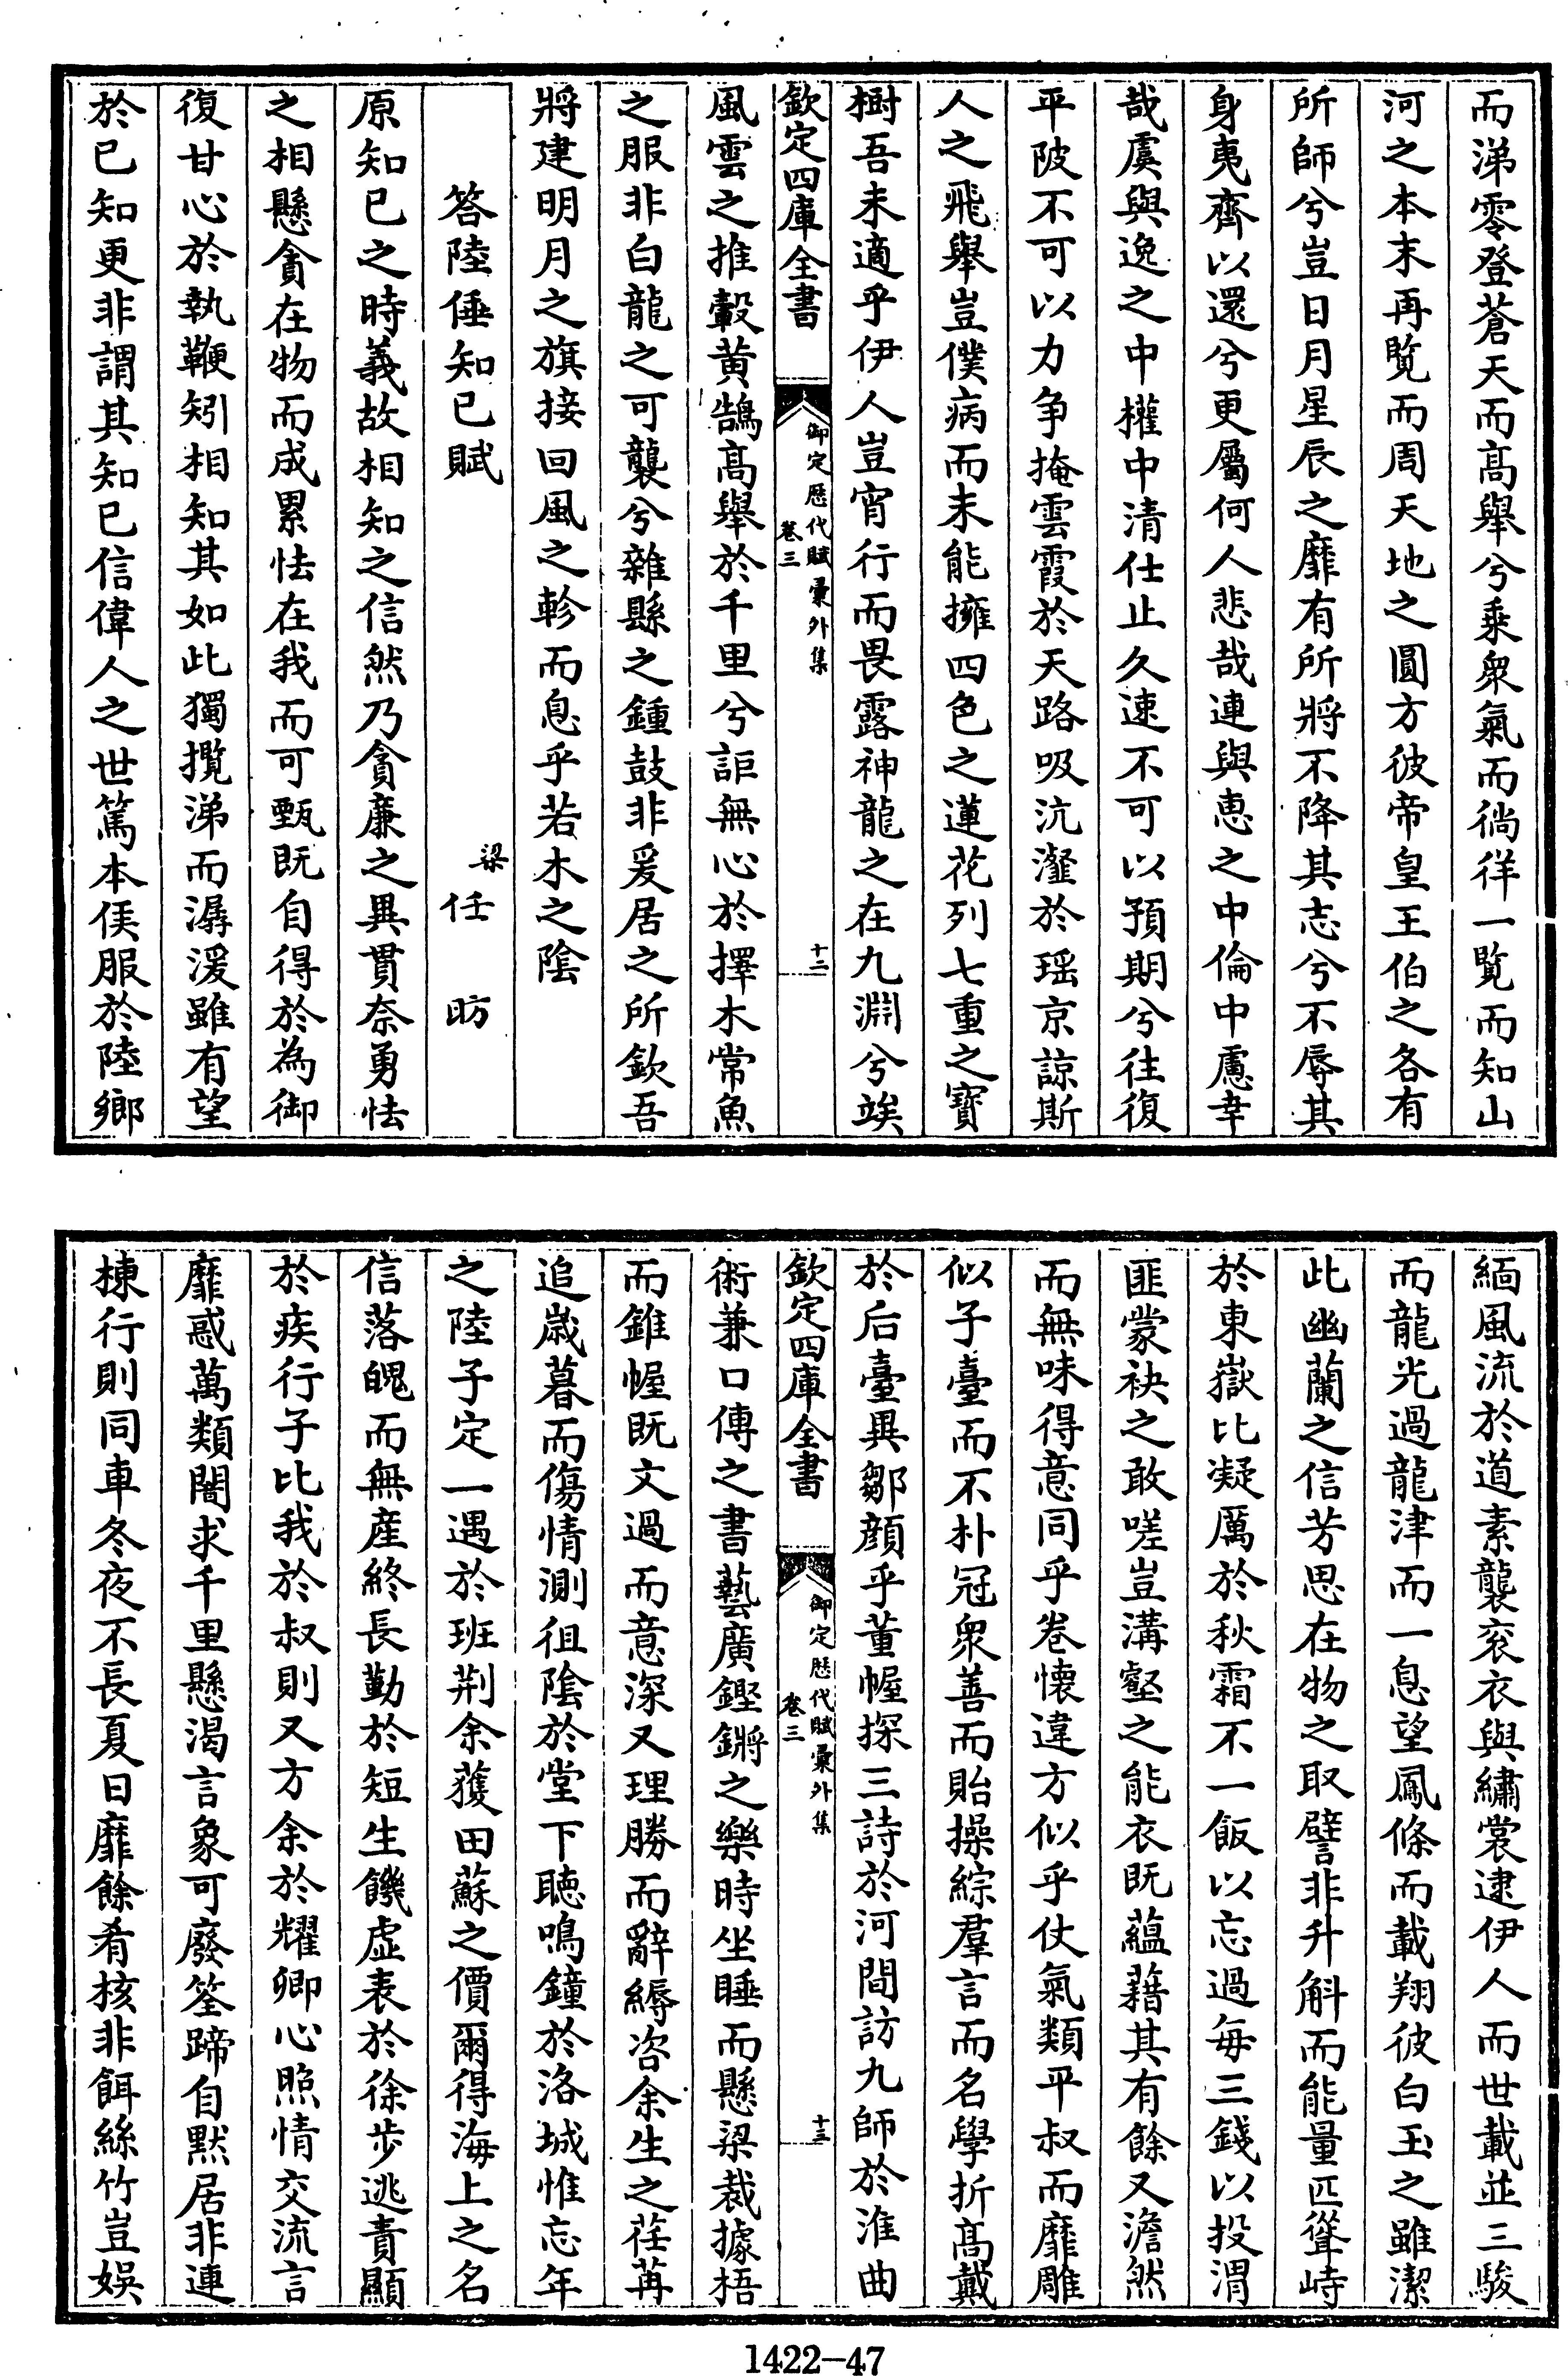 而涕零登蒼天而高舉兮乘衆氣而徜徉一覽而知山
河之本末再覽而周天地之圓方彼帝皇王伯之各有
所師兮豈日月星辰之靡有所將不降其志兮不辱其
身夷齊以還兮更屬何人悲哉連與恵之中倫中慮幸
哉虞與逸之中權中清仕止久速不可以預期兮往復
平陂不可以力争掩雲霞於天路吸沆瀣於瑶京諒斯
人之飛舉豈僕病而未能擁四色之蓮花列七重之寶
樹吾未適乎伊人豈宵行而畏露神龍之在九淵兮竢
欽定四庫全書
御定歴代賦彙外集
卷三
十二
風雲之推轂黄鵠髙舉於千里兮詎無心於擇木常魚
之服非白龍之可襲兮雜縣之鍾鼓非爰居之所欽吾
將建明月之旗接回風之軫而息乎若木之陰
答陸倕知已賦
梁任昉
原知已之時義故相知之信然乃貪廉之異貫奈勇怯
之相懸貪在物而成累怯在我而可甄既自得於為御
復甘心於執鞭矧相知其如此獨攬涕而潺湲雖有望
於已知更非謂其知已信偉人之世篤本侯服於陸鄉
緬風流於道素襲衮衣與繡裳逮伊人而世載並三駿
而龍光過龍津而一息望鳳條而載翔彼白玉之雖潔
此幽蘭之信芳思在物之取譬非升斛而能量匹聳峙
於東嶽比凝厲於秋霜不一飯以忘過每三錢以投渭
匪蒙袂之敢嗟豈溝壑之能衣既蘊藉其有餘又澹然
而無味得意同乎卷懐違方似乎仗氣類平叔而靡雕
似子臺而不朴冠衆善而貽操綜羣言而名學折髙戴
於后臺異鄒顔乎董幄探三詩於河間訪九師於淮曲
欽定四庫全書
御定歴代賦彙外集
卷三
十三
術兼口傳之書藝廣鏗鏘之樂時坐睡而懸梁裁據梧
而錐幄既文過而意深又理勝而辭縟咨余生之荏苒
追嵗暮而傷情測徂陰於堂下聴鳴鐘於洛城惟忘年
之陸子定一遇於班荆余獲田蘇之價爾得海上之名
信落魄而無産終長勤於短生饑虚表於徐步逃責顯
於疾行子比我於叔則又方余於耀卿心照情交流言
靡惑萬類闇求千里懸渴言象可廢筌蹄自黙居非連
棟行則同車冬夜不長夏日靡餘肴核非餌絲竹豈娛
1422-47